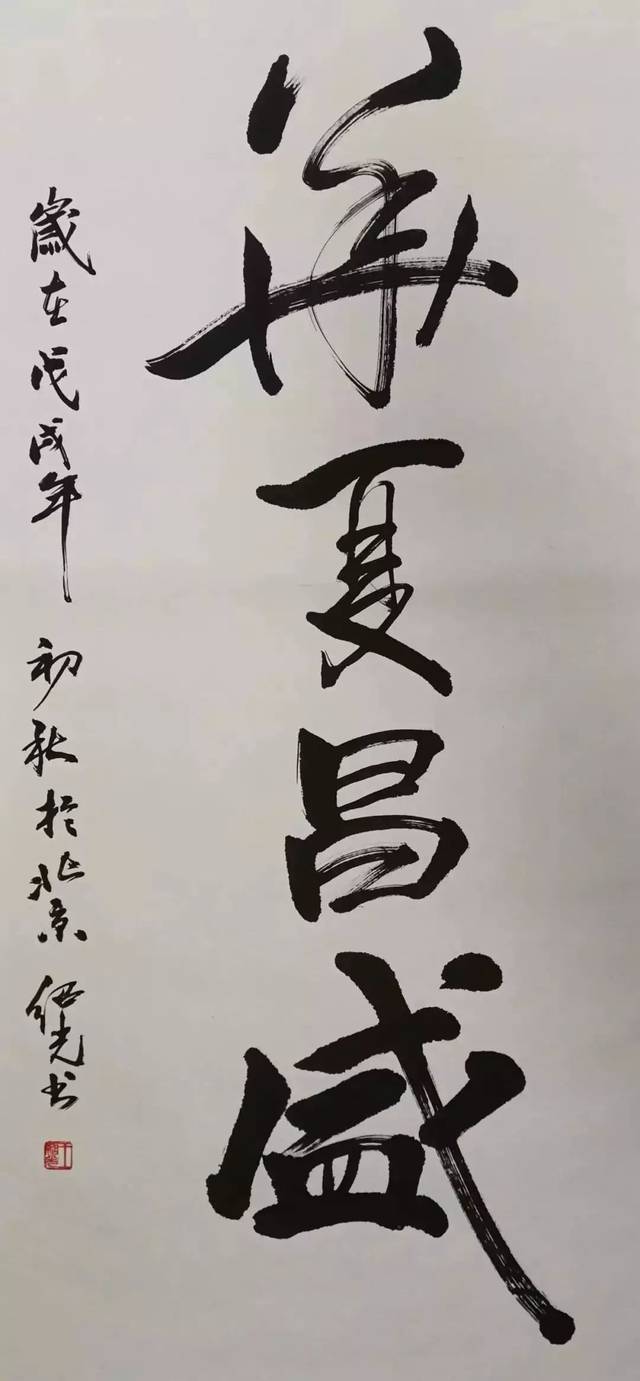 華夏昌盛
歲在戊戌年 初秋於北京 紹光书